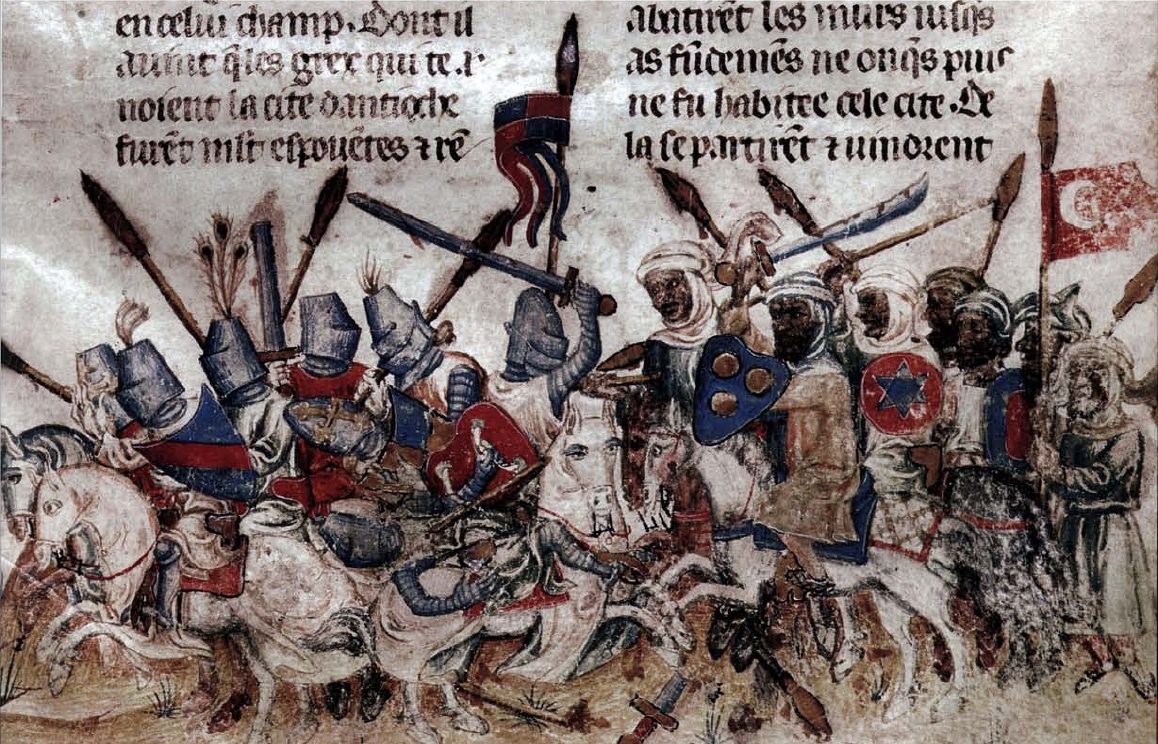 en celui champ. Dont il
auint q̃ les grex qui te.r
noient la cite dantioche
furẽt ml̃t espouẽtes ⁊ rẽ
abatirẽt les murs iusq̃s
as fũdemẽs ne onq̃s puis
ne fu habitee cele cite. De
la se partirẽt ⁊ uindrent